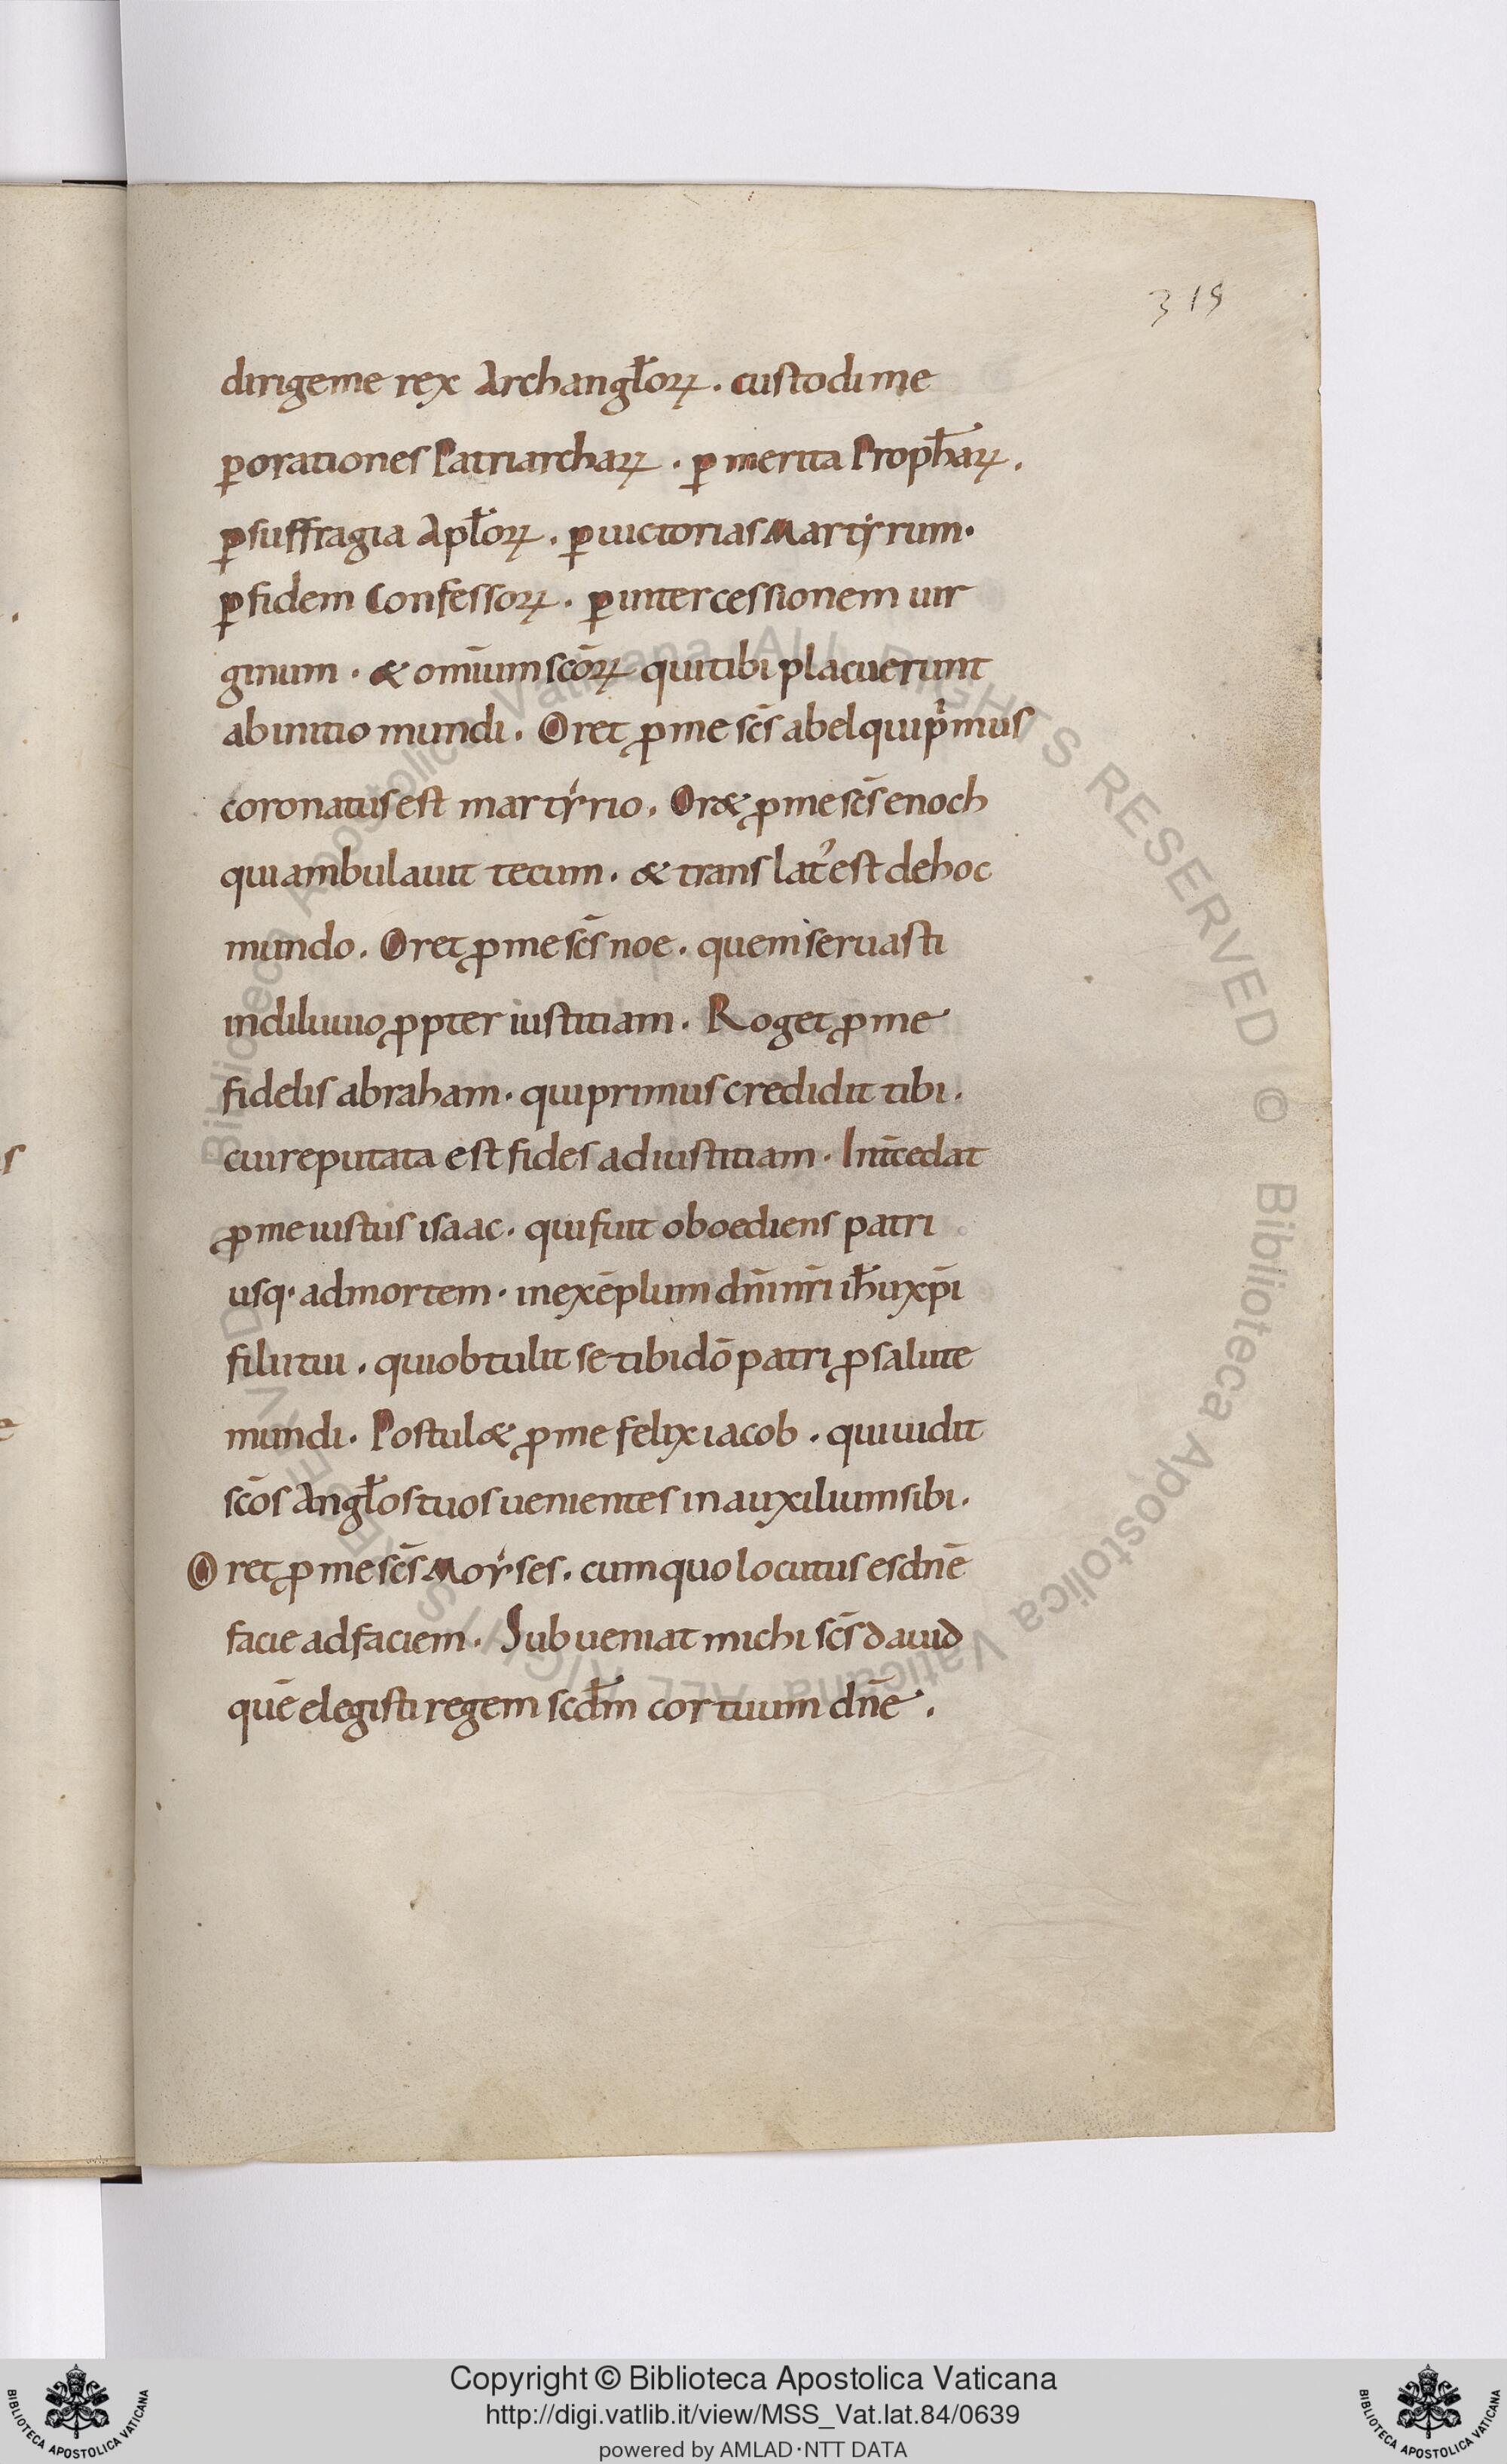 319
dirige me rex Archangłoꝝ. custodi me
ꝑ orationes Patriarchaꝝ. ꝑ merita Prophaꝝ.
ꝑ suffragia Apłoꝝ. ꝑ uictorias Martẏrum.
ꝑ fidem Confessoꝝ. ꝑ intercessionem uir
ginum. & omīum scōꝝ qui tibi placuerunt
ab initio mundi. Oret ꝓ me scs̄ abel qui pⁱmus
coronatus est martẏrio. Or& ꝓ me scs̄ enoch
qui ambulauit tecum. & translat᾽ est de hoc
mundo. Oret ꝓ me scs̄ noe. quem seruasti
in diluuio ꝓpter iustitiam. Roget ꝓ me
fidelis abraham. qui primus credidit tibi.
cui reputata est fides ad iustitiam. Int̄cedat
ꝓ me iustus isaac. qui fuit oboediens patri
usq· ad mortem. in exēplum dn̄i nr̄i ih̄u xp̄i
filii tui. qui obtulit se tibi dō patri ꝓ salute
mundi. Postul& ꝓ me felix iacob. qui uidit
scōs Angłos tuos uenientes in auxilium sibi.
Oret ꝓ me scs̄ Moẏses. cum quo locutus es dn̄e
facie ad faciem. Subueniat michi scs̄ dauid
quē elegisti regem scd̄m cor tuum dn̄e.
Biblioteca Apostolica Vaticana ALL RIGHTS RESERVED © Biblioteca Apostolica Vaticana ALL RIGHTS RESERVED
Copyright © Biblioteca Apostolica Vaticana
http://digi.vatlib.it/view/MSS_Vat.lat.84/0639
powered by AMLAD·NTT DATA
BIBLIOTECA APOSTOLICA VATICANA
BIBLIOTECA APOSTOLICA VATICANA